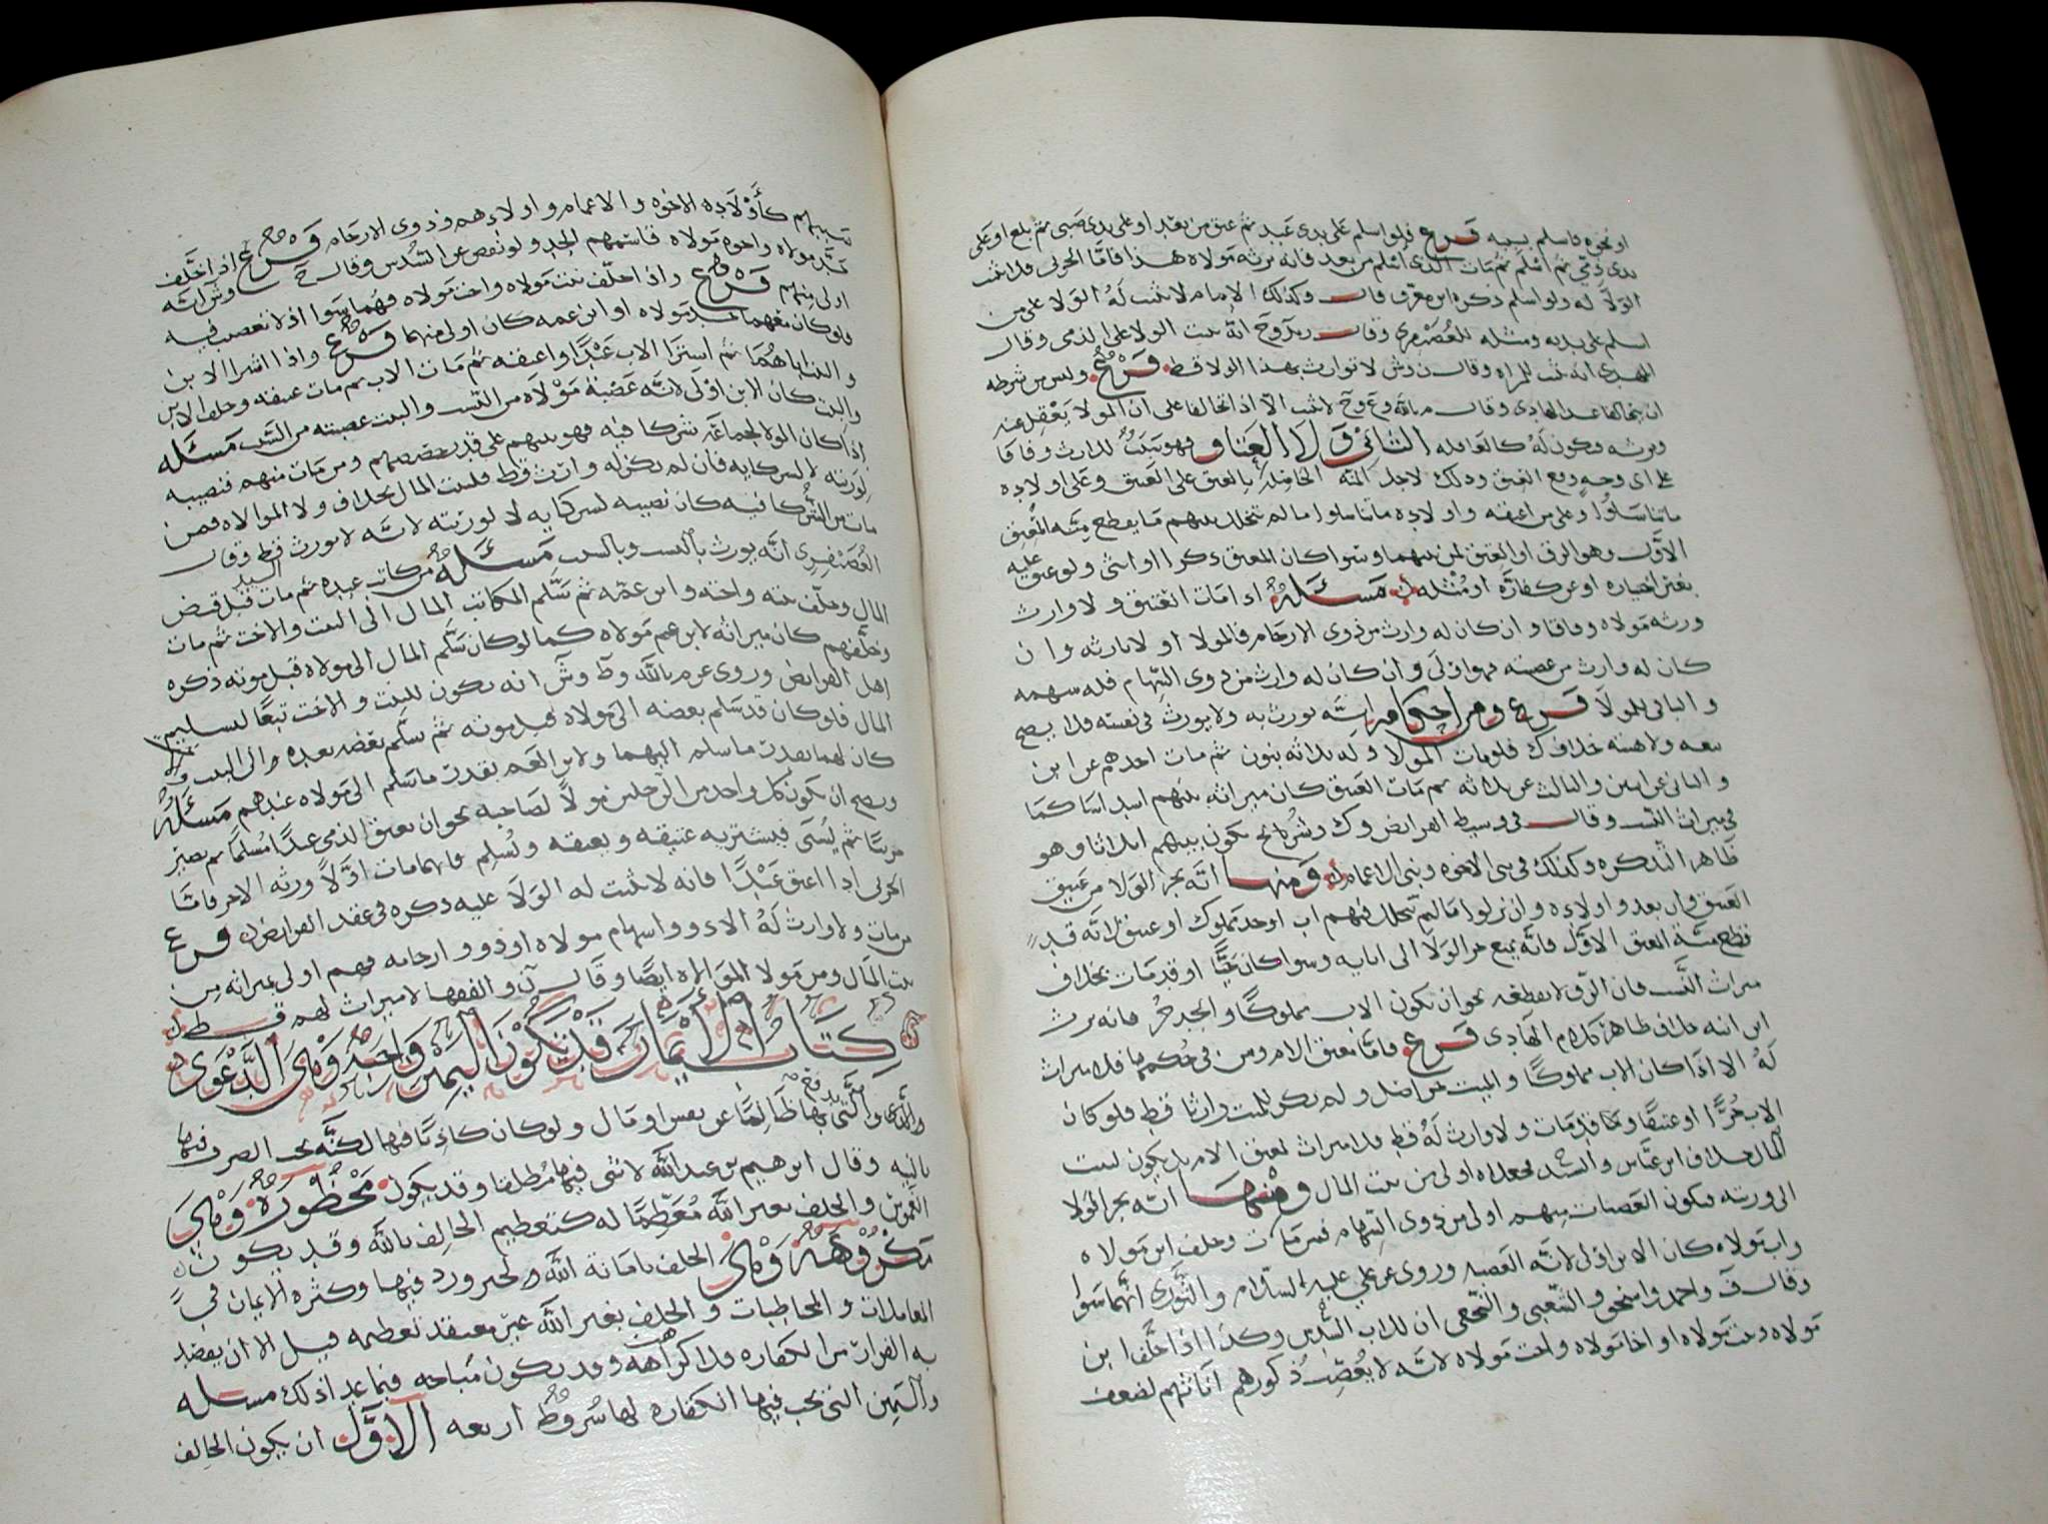 او نحوه فاسلم بسببه فرع فلو اسلم على يدى عبد ثم عتق من بعد او على يدى صبى ثم بلغ او على
يدى ذمى ثم اسلم ثم مات الذى اسلم من بعد فانه يرثه مولاه هذا فاما الحربى فلا يثبت
الولا له ولو اسلم ذكره ابن معرف قال وكذلك الامام لا يثبت له الولا على من
اسلم على يديه ومثله للعصيفرى وقال انه يثبت الولا على الذمى وقال
المهدى انه يثبت للمراه وقال ن وش لا توارث بهذا الولا قط فرع وليس من شرطه
ان يتحالفا عند الهادى وقال لا يثبت الا اذا تحالفا على ان المولا يعقل عنه
ويرثه ويكون له كالعاقله الثانى ولا العتاق فهو يثبت للارث وفاقا
على اى وجه وقع العتق وذلك لاجل المنه الحاصله بالعتق على العتيق وعلى اولاده
ما تناسلوا وعلى من اعتقه واولاده ما تناسلوا ما لم يتخلل بينهم ما يقطع منه المعتق
الاول وهو الرق او العتق لمن بينهما وسوا كان المعتق ذكرا او انثى ولو عتق عليه
بغير اختياره او عن كفارة او مثله مسئلة اذا مات العتيق ولا وارث
ورثه مولاه وفاقا وان كان له وارث من ذوى الارحام فالمولا اولا بارثه وان
كان له وارث من عصبته فهو اولى وان كان له وارث من ذوى السهام فله سهمه
والباقى للمولا فرع ومن احكامه انه يورث به ولا يورث فى نفسه فلا يصح
بيعه ولا هبته خلاف ك فلو مات المولا وله ثلاثه بنون ثم مات احدهم عن ابن
والثانى عن ابنين والثالث عن ثلاثه ثم مات العتيق كان ميراثه بينهم اسداسا كما
فى ميراث النسب وقال فى وسيط الفرايض وك وشريح يكون بينهم اثلاثا وهو
ظاهر التذكره وكذلك فى بنى الاخوه وبنى الاعمام ومنها انه يجر الولا من عتيق
العتيق وان بعد واولاده وان نزلوا ما لم يتخلل بينهم اب او جد مملوك او عتيق لانه قد
قطع منة المعتق الاول فانه يمنع جر الولا الى ابنايه وسوا كان حيا او قد مات بخلاف
ميراث النسب فان الرق لا يقطعه نحو ان يكون الاب مملوكا والجد حر فانه يرث
ابن ابنه خلاف ظاهر كلام الهادى فرع فاما معتق الام ومن فى حكمها فلا ميراث
له الا اذا كان الاب مملوكا والميت حر اصل ولم يكن للميت وارثا قط فلو كان
الاب حرا او عتيقا وقد مات ولا وارث له قط فلا ميراث لمعتق الام بل يكون لبيت
المال خلاف ابن عباس والسيد فجعلاه اولى من بيت المال ومنها انه يجر المولا
الى ورثته فيكون العصبات منهم اولى من ذوى السهام فمن مات وخلف ابن مولاه
واب مولاه كان الابن اولى لانه العصبه وروى عن على عليه السلام والثورى انهما سوا
وقال ف واحمد واسحق والشعبى والنخعى ان للاب السدس وكذا اذا خلف ابن
مولاه وبنت مولاه او اخا مولاه واخت مولاه لانه لا يعصب ذكورهم اناثهم لضعف
نسبهم كأولاد الاخوه والاعمام واولادهم وذوى الارحام فرع اذا خلف
جد مولاه واخوه مولاه قاسمهم الجد ولو نقص عن السدس وقال ح وش انه
اولى منهم فرع واذا خلف بنت مولاه واخت مولاه فهما سوا اذ لا تعصب فيه
ولو كان معهما جد مولاه او ابن عمه كان اولى منهما فرع واذا اشترا الابن
والبنت اباهما ثم اشترا الاب عبدا واعتقه ثم مات الاب ثم مات عتيقه وخلف الابن
والبنت كان الابن اولى لانه عصبة مولاه من النسب والبنت عصبته من السبب مسئله
اذا كان الولا لجماعة شركا فيه فهو بينهم على قدر حصصهم ومن مات منهم فنصيبه
لورثته لا لشركايه فان لم يكن له وارث قط فلبيت المال بخلاف ولا الموالاه فمن
مات من الشركا فيه كان نصيبه لشركايه لا لورثته لانه لا يورث قط وقال
العصيفرى انه يورث بالنسب وبالسبب مسئله من كاتب عبده ثم مات السيد قبل قبض
المال وخلف بنته واخته وابن عمه ثم سلم المكاتب المال الى البنت والاخت ثم مات
وخلفهم كان ميراثه لابن عم مولاه كما لو كان سلم المال الى مولاه قبل موته ذكره
اهل الفرايض وروى عن م بالله وط وش انه يكون للبنت والاخت تبعا لتسليم
المال فلو كان قد سلم بعضه الى مولاه قبل موته ثم سلم بعضه بعده الى البنت و
كان لهما بقدر ما سلم اليهما ولابن العم بقدر ما سلم الى مولاه عندهم مسئلة
ويصح ان يكون كل واحد من الرجلين مولا لصاحبه نحو ان يعتق الذمى عبدا مسلما ثم يصير
حربيا ثم يسبى فيشتريه عتيقه ويعتقه ويسلم فايهما مات اولا ورثه الاخر فاما
الحربى اذا اعتق عبدا فانه لا يثبت له الولا عليه ذكره فى عقد الفرايض فرع
من مات ولا وارث له الا ذووا سهام مولاه او ذووا ارحامه فهم اولى بميراثه من
بيت المال ومن مولا الموالاه ايضا وقال ن والفقها لا ميراث لهم قط
كتاب الأيمان قد تكون اليمين واجبة وهى الدعوى
والتى يدفع بها ظالما عن نفس او مال ولو كان كاذبا فيها لكنه يجب الصرف فيها
بالنيه وقال ابرهيم بن عبدالله لا شى فيها مطلقا وقد يكون محظورة وهى
الغموس والحلف بغير الله معظما له كتعظيم الحالف بالله وقد يكون
مكروهه وهى الحلف بامانة الله لخبر ورد فيها وكثرة الايمان فى
المعاملات والمخاطبات والحلف بغير الله غير معتقد تعظيمه قيل الا ان يقصد
به الفرار من الكفاره فلا كراهه وقد يكون مباحه فيما عدا ذلك مسئله
واليمين التى يجب فيها الكفاره لها شروط اربعه الاول ان يكون الحالف